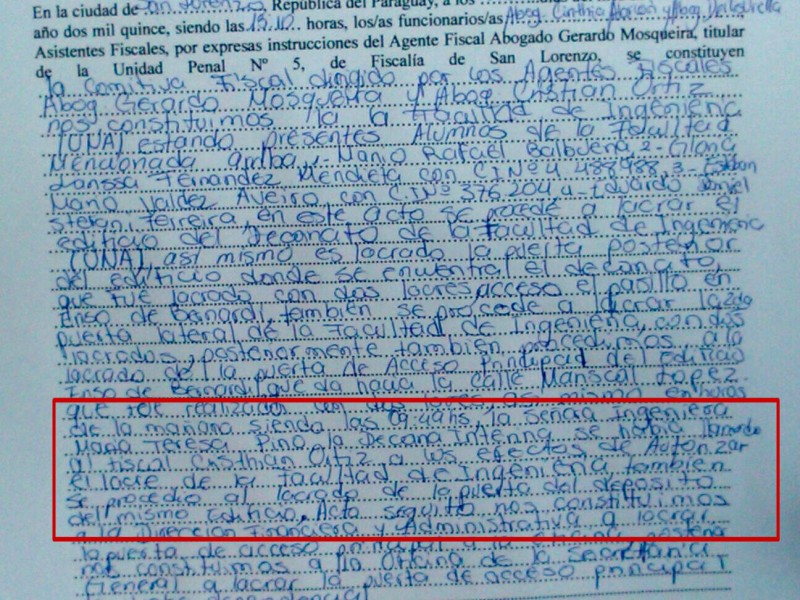 En la ciudad de San Lorenzo República del Paraguay, a los
año dos mil quince, siendo las 15:10 horas, los/as funcionarios/as Abog. Cinthia y Abog.
Asistentes Fiscales, por expresas instrucciones del Agente Fiscal Abogado Gerardo Mosqueira, titular
de la Unidad Penal Nº 5, de Fiscalía de San Lorenzo, se constituyen
la Comitiva Fiscal dirigido por los Agentes Fiscales
Abog. Gerardo Mosqueira y Abog Cristian Ortiz
nos constituimos a la Facultad de Ingenieria
(UNA) estando presentes Alumnos de la Facultad
Mencionada arriba, 1- Mario Rafael Balbuena, 2- Gloria
Larissa Fernandez Mendieta con C.I Nº 4.488.988, 3- Esteban
Mario Valdez Aveiro con C.I Nº 376.204 4- Eduardo Daniel
Stefan Ferreira, en este acto se procede a lacrar el
edificio del Decanato de la Facultad de Ingenieria
(UNA) así mismo es lacrado la puerta posterior
del edificio donde se encuentra el decanato,
que fue lacrado con dos lacres acceso el pasillo en
Enso de Benardi, también se procede a lacrar la 2da
puerta lateral de la Facultad de Ingenieria, con dos
lacrados, posteriormente también procedimos a la
lacrado de la puerta de Acceso Principal del Edificio
Enso de Benardi que da hacia la calle Mariscal Lopez.
que fue realizado con dos lacres, asi mismo en horas
de la mañana siendo las 09:00hs, la Señora Ingeniera
Maria Teresa Pino, la Decana Interina se había llamado
al fiscal Cristhian Ortiz a los efectos de Autorizar
el lacre de la facultad de Ingenieria, también
se procedio al lacrado de la puerta del deposito
del mismo Edificio. Acto seguido nos constituimos
a la Direccion Financiera y Administrativa a lacrar
la puerta de acceso principal a la oficina
nos constituimos a la Oficina de la Secretaria
General a lacrar la puerta de acceso principal